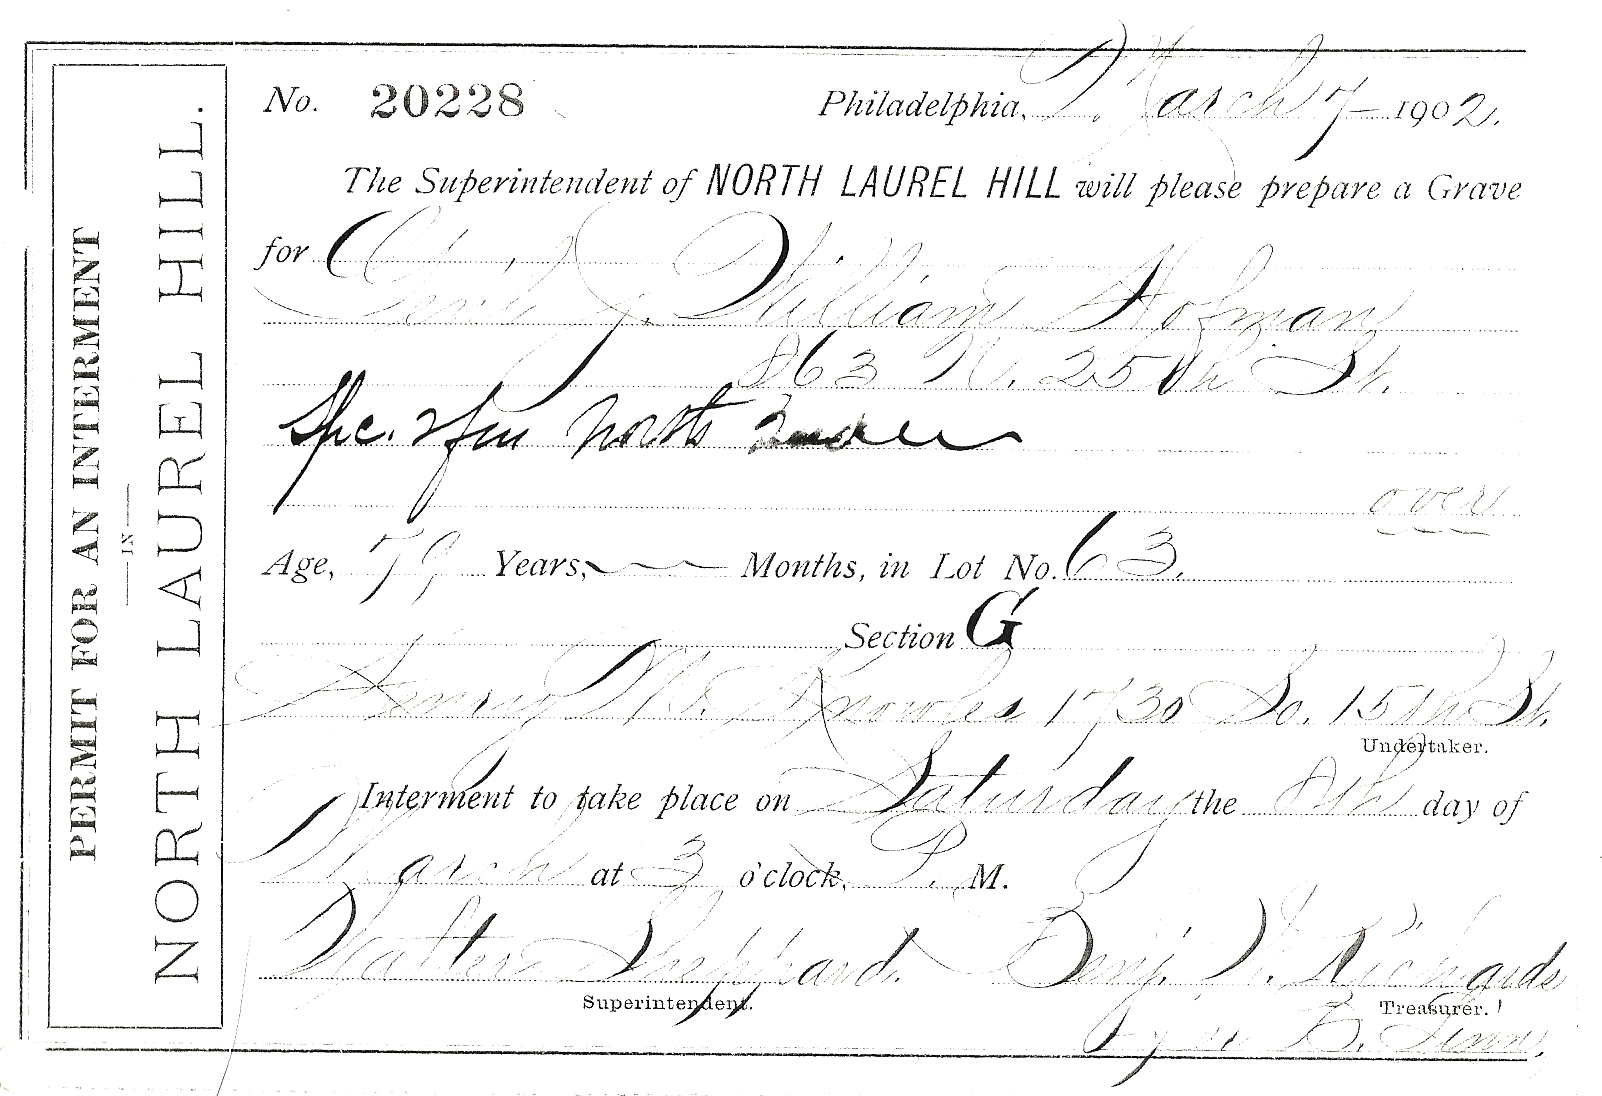 PERMIT FOR AN INTERMENT
IN
NORTH LAUREL HILL.
No. 20228 Philadelphia, March 7 1902.
The Superintendent of NORTH LAUREL HILL will please prepare a Grave
for
J. William Hofman
863 N. 25th St.
North
over
Age, 79 Years, Months, in Lot No. 63.
Section G
Henry M. Knowles 1730 So. 15th St.
Undertaker.
Interment to take place on Saturday the 8th day of
March at 3 o'clock, P. M.
Walter Sheppard. Benj. W. Richards
Superintendent. Treasurer.
B. Finn.